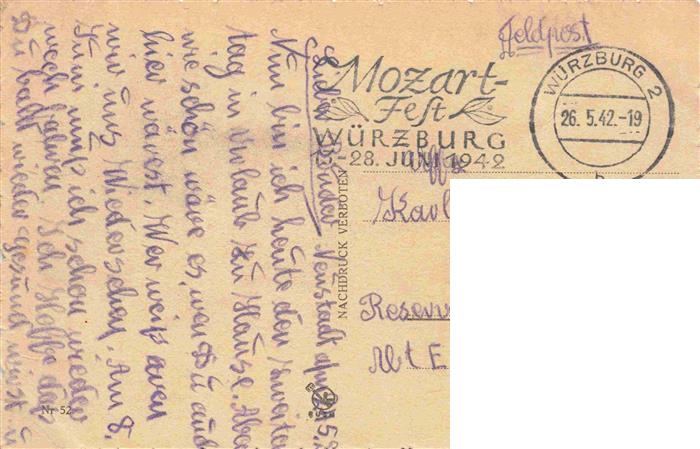 Feldpost
Mozart-
Fest
WÜRZBURG
-28. JUNI 1942
WÜRZBURG 2
26. 5. 42.-19
b
Karl
Reserv
Abt E
NACHDRUCK VERBOTEN
Nr 52
Lieber Bruder Neustadt 5.
Nun bin ich heute den zweiten
tag in Urlaub zu Hause. Aber
wie schön wäre es, wen Du auch
hier wärest. Wer weiß wen
wir uns Wiedersehen. Am 8.
Juni muß ich schon wieder
nach Ich Hoffe daß
Du bald wieder gesund wirst u